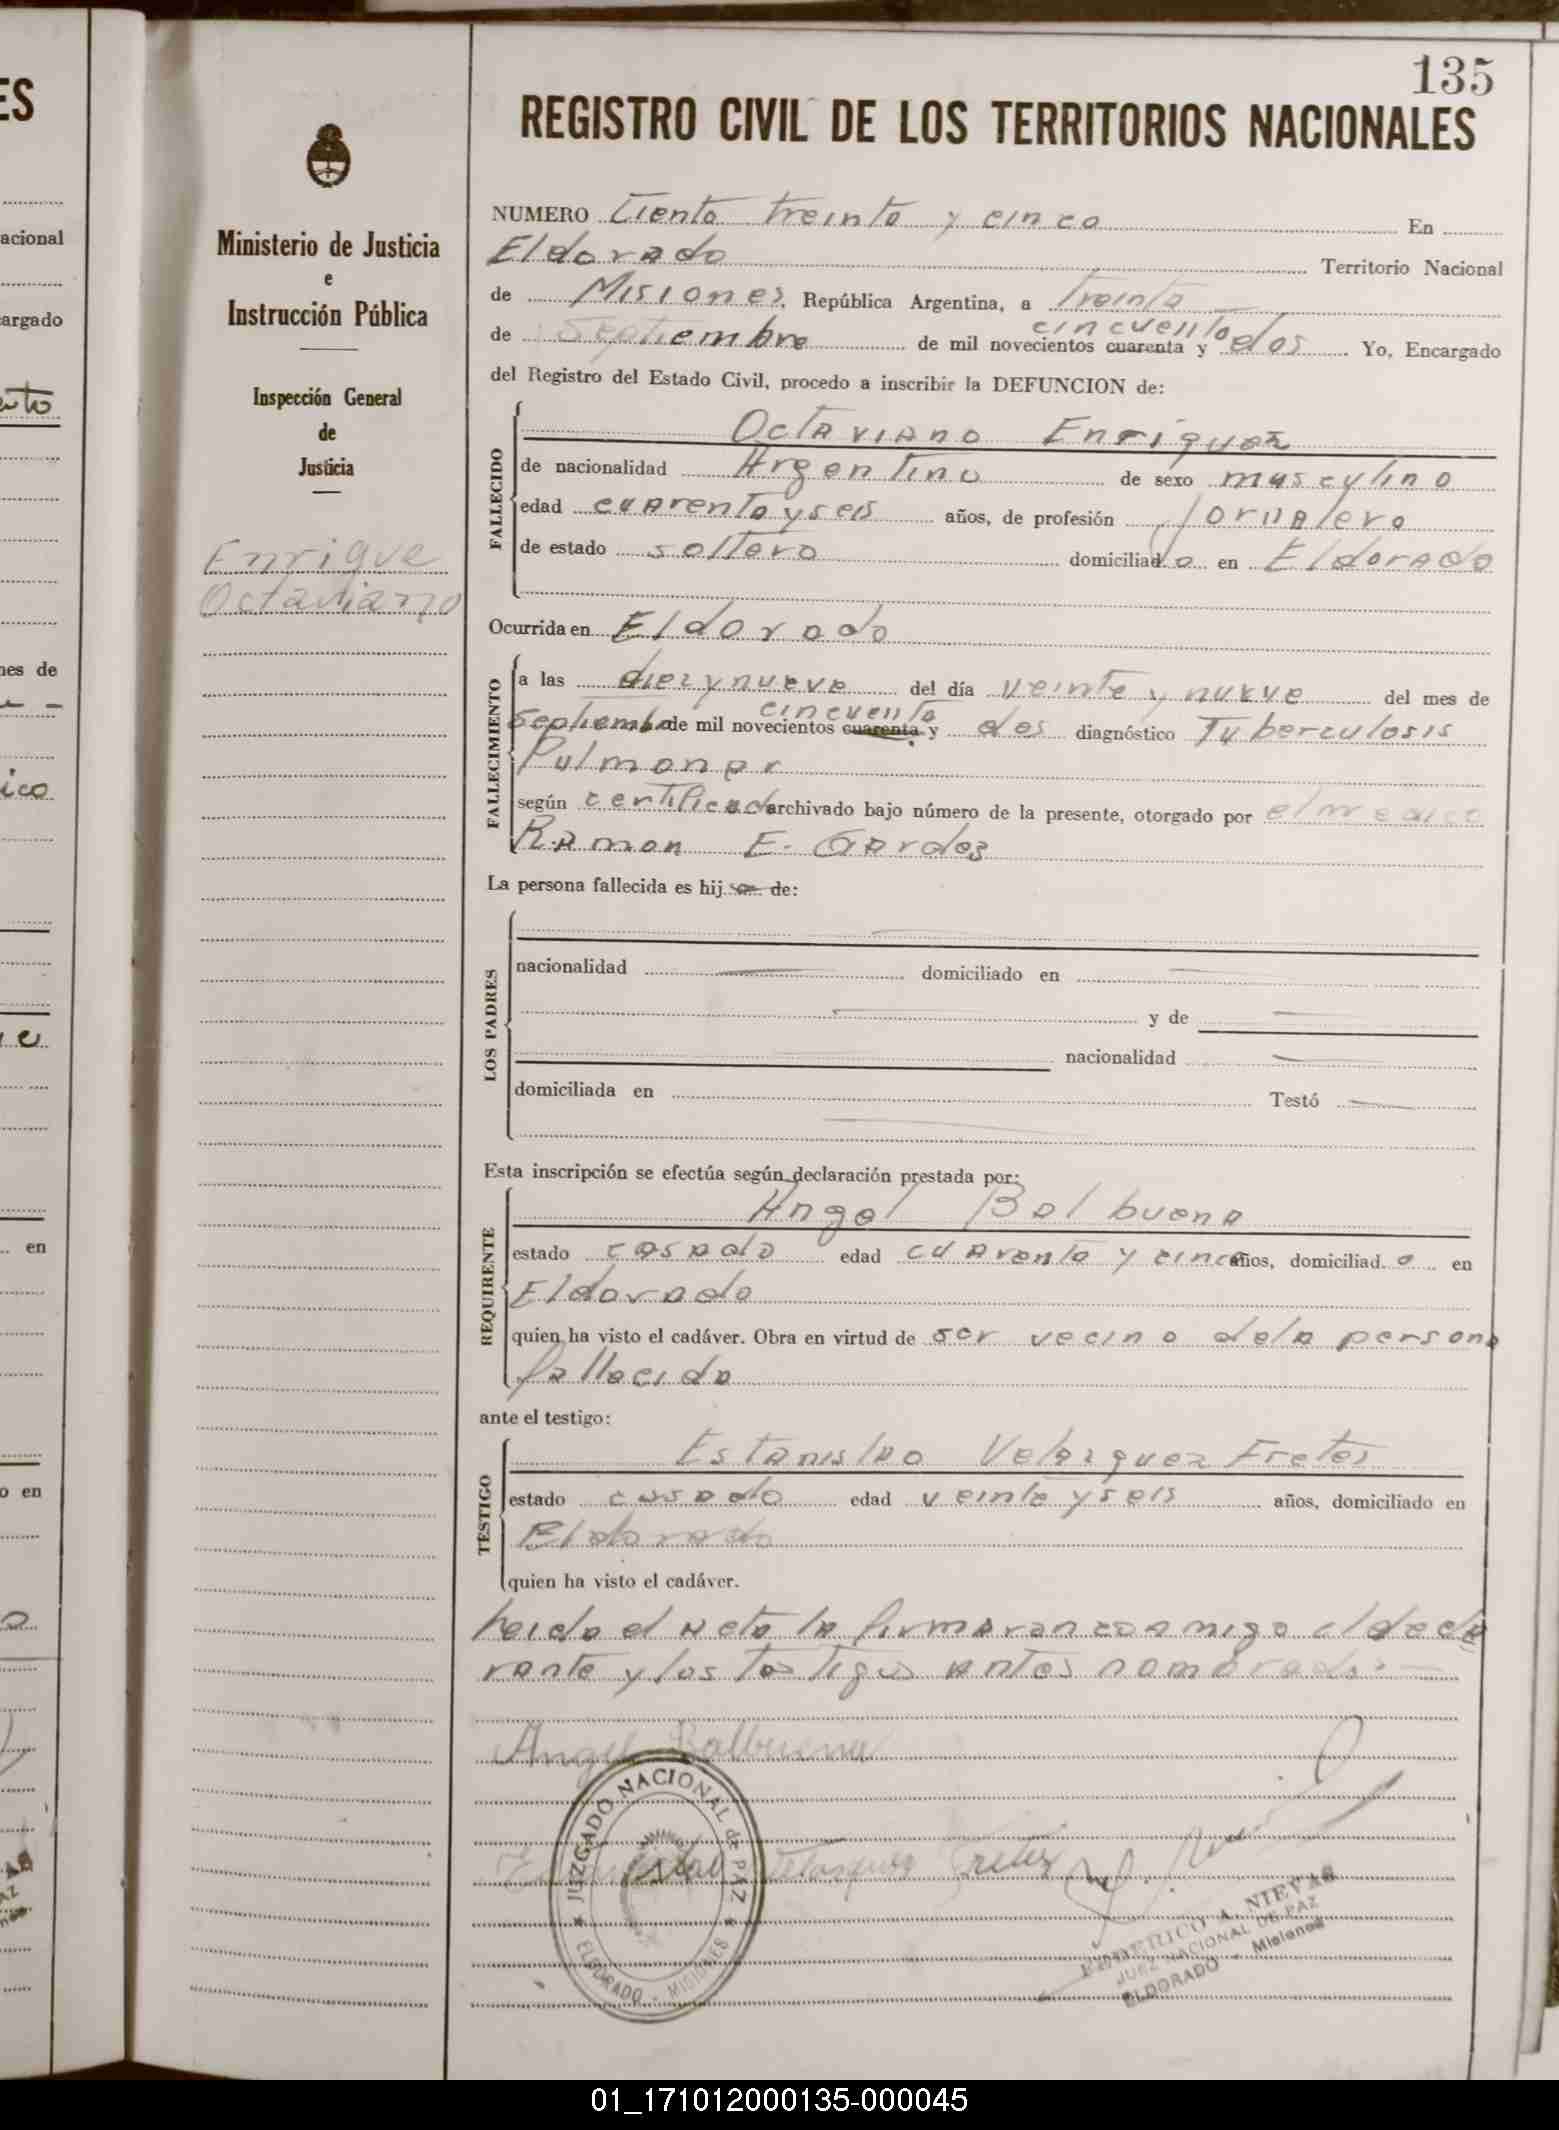 135
REGISTRO CIVIL DE LOS TERRITORIOS NACIONALES
Ministerio de Justicia
e
Instrucción Pública
Inspección General
de
Justicia
Enrique
Octaviano
NUMERO Ciento treinta y cinco En
Eldorado Territorio Nacional
de Misiones, República Argentina, a treinta
de Septiembre de mil novecientos cuarenta y cincuenta dos Yo, Encargado
del Registro del Estado Civil, procedo a inscribir la DEFUNCION de:
FALLECIDO
Octaviano Enriquez
de nacionalidad Argentino de sexo masculino
edad cuarenta y seis años, de profesión Jornalero
de estado soltero domiciliado en Eldorado
Ocurrida en Eldorado
FALLECIMIENTO
a las diez y nueve del día veinte y nueve del mes de
Septiembre de mil novecientos cuarenta y cincuenta dos diagnóstico Tuberculosis
Pulmonar
según certificado archivado bajo número de la presente, otorgado por el medico
Ramon E.
La persona fallecida es hij de:
LOS PADRES
nacionalidad domiciliado en
y de
nacionalidad
domiciliada en Testó
Esta inscripción se efectúa según declaración prestada por:
REQUIRENTE
Angel Balbuena
estado casado edad cuarenta y cinco años, domiciliado en
Eldorado
quien ha visto el cadáver. Obra en virtud de ser vecino de la persona
fallecida
ante el testigo:
TESTIGO
Estanislao Velazquez Fretes
estado casado edad veinte y seis años, domiciliado en
Eldorado
quien ha visto el cadáver.
Leida el Acta la firmaran conmigo el decla
rante y los testigos antes nombrados.-
Angel Balbuena
JUZGADO NACIONAL de PAZ
ELDORADO - MISIONES
Velazquez Fretes
FEDERICO A. NIEVAS
JUEZ NACIONAL DE PAZ
ELDORADO - Misiones
01_171012000135-000045